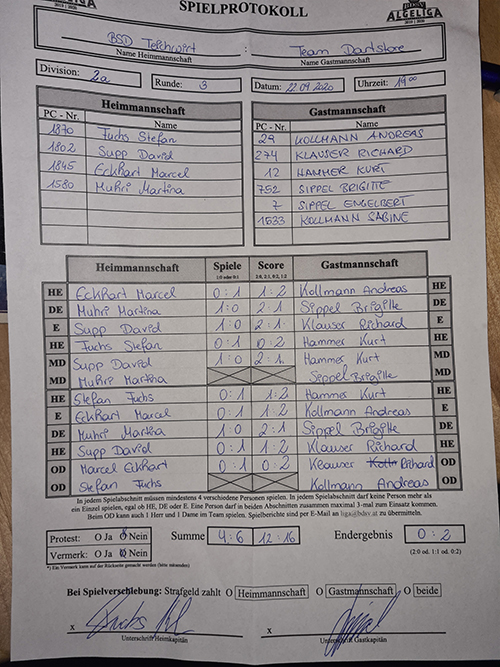 SPIELPROTOKOLL
ALGELIGA
BSD Teichwirt : Team Dartstore
Name Heimmannschaft Name Gastmannschaft
Division: 2a Runde: 3 Datum: 22.09.2020 Uhrzeit: 19 00
Heimmannschaft Gastmannschaft
PC - Nr. Name PC - Nr. Name
1870 Fuchs Stefan 29 KOLLMANN ANDREAS
1802 Supp David 274 KLAUSER RICHARD
1845 Eckhart Marcel 12 HAMMER KURT
1580 Muhri Martina 752 SIPPEL BRIGITTE
7 SIPPEL ENGELBERT
1533 KOLLMANN SABINE
Heimmannschaft Spiele Score Gastmannschaft
1:0 oder 0:1 2:0, 2:1, 0:2, 1:2
HE Eckhart Marcel 0:1 1:2 Kollmann Andreas HE
DE Muhri Martina 1:0 2:1 Sippel Brigitte DE
E Supp David 1:0 2:1 Klauser Richard E
HE Fuchs Stefan 0:1 0:2 Hammer Kurt HE
MD Supp David 1:0 2:1 Hammer Kurt MD
MD Muhri Martina Sippel Brigitte MD
HE Stefan Fuchs 0:1 1:2 Hammer Kurt HE
E Eckhart Marcel 0:1 1:2 Kollmann Andreas E
DE Muhri Martina 1:0 2:1 Sippel Brigitte DE
HE Supp David 0:1 1:2 Klauser Richard HE
OD Marcel Eckhart 0:1 0:2 Klauser Richard OD
OD Stefan Fuchs Kollmann Andreas OD
In jedem Spielabschnitt müssen mindestens 4 verschiedene Personen spielen. In jedem Spielabschnitt darf keine Person mehr als
ein Einzel spielen, egal ob HE, DE oder E. Eine Person darf in beiden Abschnitten zusammen maximal 3-mal zum Einsatz kommen.
Beim OD kann auch 1 Herr und 1 Dame im Team spielen. Spielberichte sind per E-Mail an liga@bdsv.at zu übermitteln.
Protest: O Ja O Nein Summe 4:6 12:16 Endergebnis 0:2
Vermerk: O Ja O Nein (2:0 od. 1:1 od. 0:2)
*) Ein Vermerk kann auf der Rückseite gemacht werden (bitte ankreuzen)
Bei Spielverschiebung: Strafgeld zahlt O Heimmannschaft O Gastmannschaft O beide
x x
Unterschrift Heimkapitän Unterschrift Gastkapitän